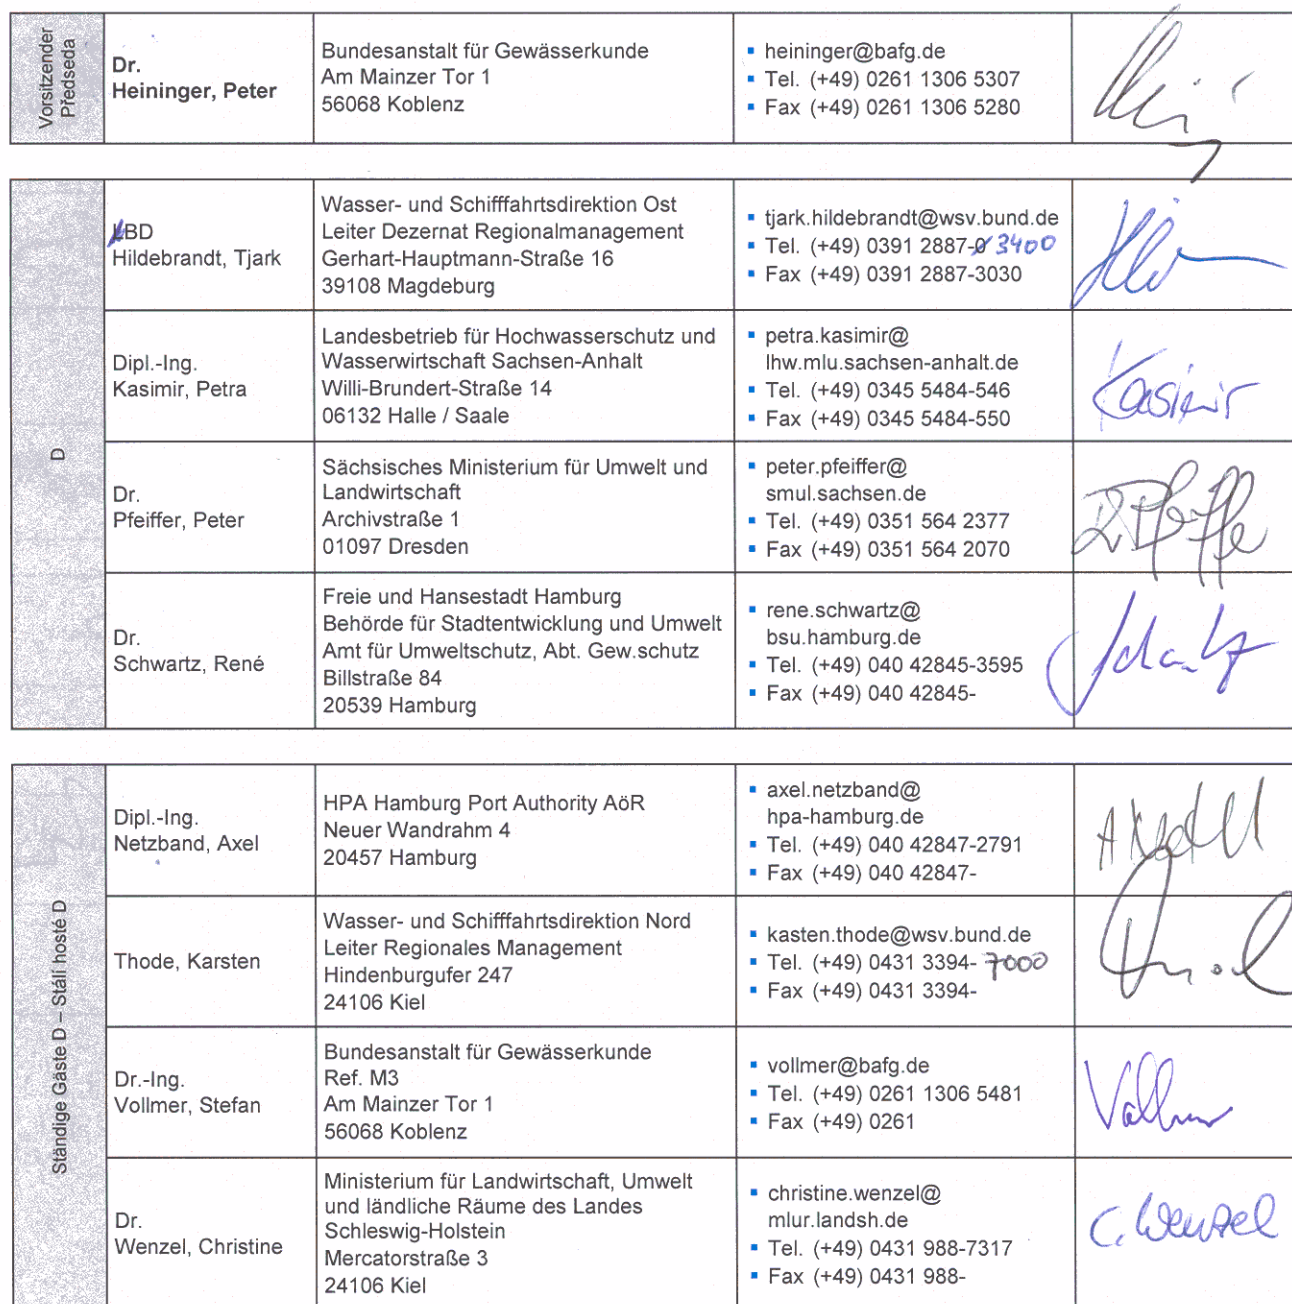 Vorsitzender
Předseda
Dr.
Heininger, Peter
Bundesanstalt für Gewässerkunde
Am Mainzer Tor 1
56068 Koblenz
▪ heininger@bafg.de
▪ Tel. (+49) 0261 1306 5307
▪ Fax (+49) 0261 1306 5280
D
BD
Hildebrandt, Tjark
Wasser- und Schifffahrtsdirektion Ost
Leiter Dezernat Regionalmanagement
Gerhart-Hauptmann-Straße 16
39108 Magdeburg
▪ tjark.hildebrandt@wsv.bund.de
▪ Tel. (+49) 0391 2887-0 3400
▪ Fax (+49) 0391 2887-3030
Dipl.-Ing.
Kasimir, Petra
Landesbetrieb für Hochwasserschutz und
Wasserwirtschaft Sachsen-Anhalt
Willi-Brundert-Straße 14
06132 Halle / Saale
▪ petra.kasimir@
lhw.mlu.sachsen-anhalt.de
▪ Tel. (+49) 0345 5484-546
▪ Fax (+49) 0345 5484-550
Kasimir
Dr.
Pfeiffer, Peter
Sächsisches Ministerium für Umwelt und
Landwirtschaft
Archivstraße 1
01097 Dresden
▪ peter.pfeiffer@
smul.sachsen.de
▪ Tel. (+49) 0351 564 2377
▪ Fax (+49) 0351 564 2070
Dr.
Schwartz, René
Freie und Hansestadt Hamburg
Behörde für Stadtentwicklung und Umwelt
Amt für Umweltschutz, Abt. Gew.schutz
Billstraße 84
20539 Hamburg
▪ rene.schwartz@
bsu.hamburg.de
▪ Tel. (+49) 040 42845-3595
▪ Fax (+49) 040 42845-
Ständige Gäste D – Stálí hosté D
Dipl.-Ing.
Netzband, Axel
HPA Hamburg Port Authority AöR
Neuer Wandrahm 4
20457 Hamburg
▪ axel.netzband@
hpa-hamburg.de
▪ Tel. (+49) 040 42847-2791
▪ Fax (+49) 040 42847-
Thode, Karsten
Wasser- und Schifffahrtsdirektion Nord
Leiter Regionales Management
Hindenburgufer 247
24106 Kiel
▪ kasten.thode@wsv.bund.de
▪ Tel. (+49) 0431 3394- 7000
▪ Fax (+49) 0431 3394-
Dr.-Ing.
Vollmer, Stefan
Bundesanstalt für Gewässerkunde
Ref. M3
Am Mainzer Tor 1
56068 Koblenz
▪ vollmer@bafg.de
▪ Tel. (+49) 0261 1306 5481
▪ Fax (+49) 0261
Vollmer
Dr.
Wenzel, Christine
Ministerium für Landwirtschaft, Umwelt
und ländliche Räume des Landes
Schleswig-Holstein
Mercatorstraße 3
24106 Kiel
▪ christine.wenzel@
mlur.landsh.de
▪ Tel. (+49) 0431 988-7317
▪ Fax (+49) 0431 988-
C. Wenzel